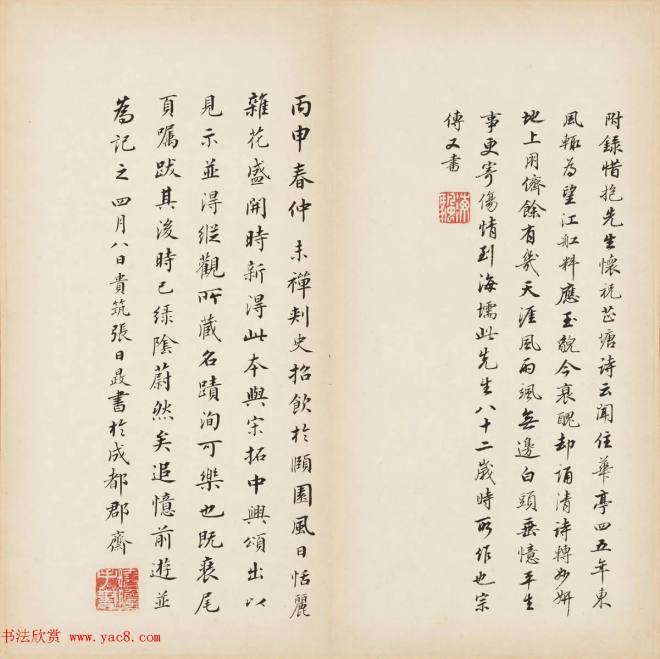 附錄惜抱先生懷祝芷塘诗云闻住華亭四五年东
風輒為望江舡料應玉貌今衰醜却诵清詩轉如妍
地上用儕餘有幾天涯風雨颯無邊白頭垂憶平生
事更寄傷情到海壖此先生八十二歲時所作也宗
傅又書
丙申春仲未禪刺史招飲於頤園風日恬麗
雜花盛開時新得此本與宋拓中興頌出以
見示並得縱觀所藏名蹟洵可樂也既裒尾
頁嘱跋其後時已绿陰蔚然矣追憶前遊並
為記之四月八日貴筑張日晸書於成都郡齋
书法欣赏 www.yac8.com